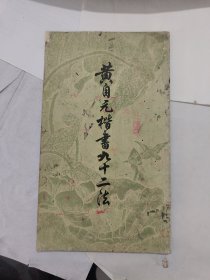 黄自元楷书九十二法